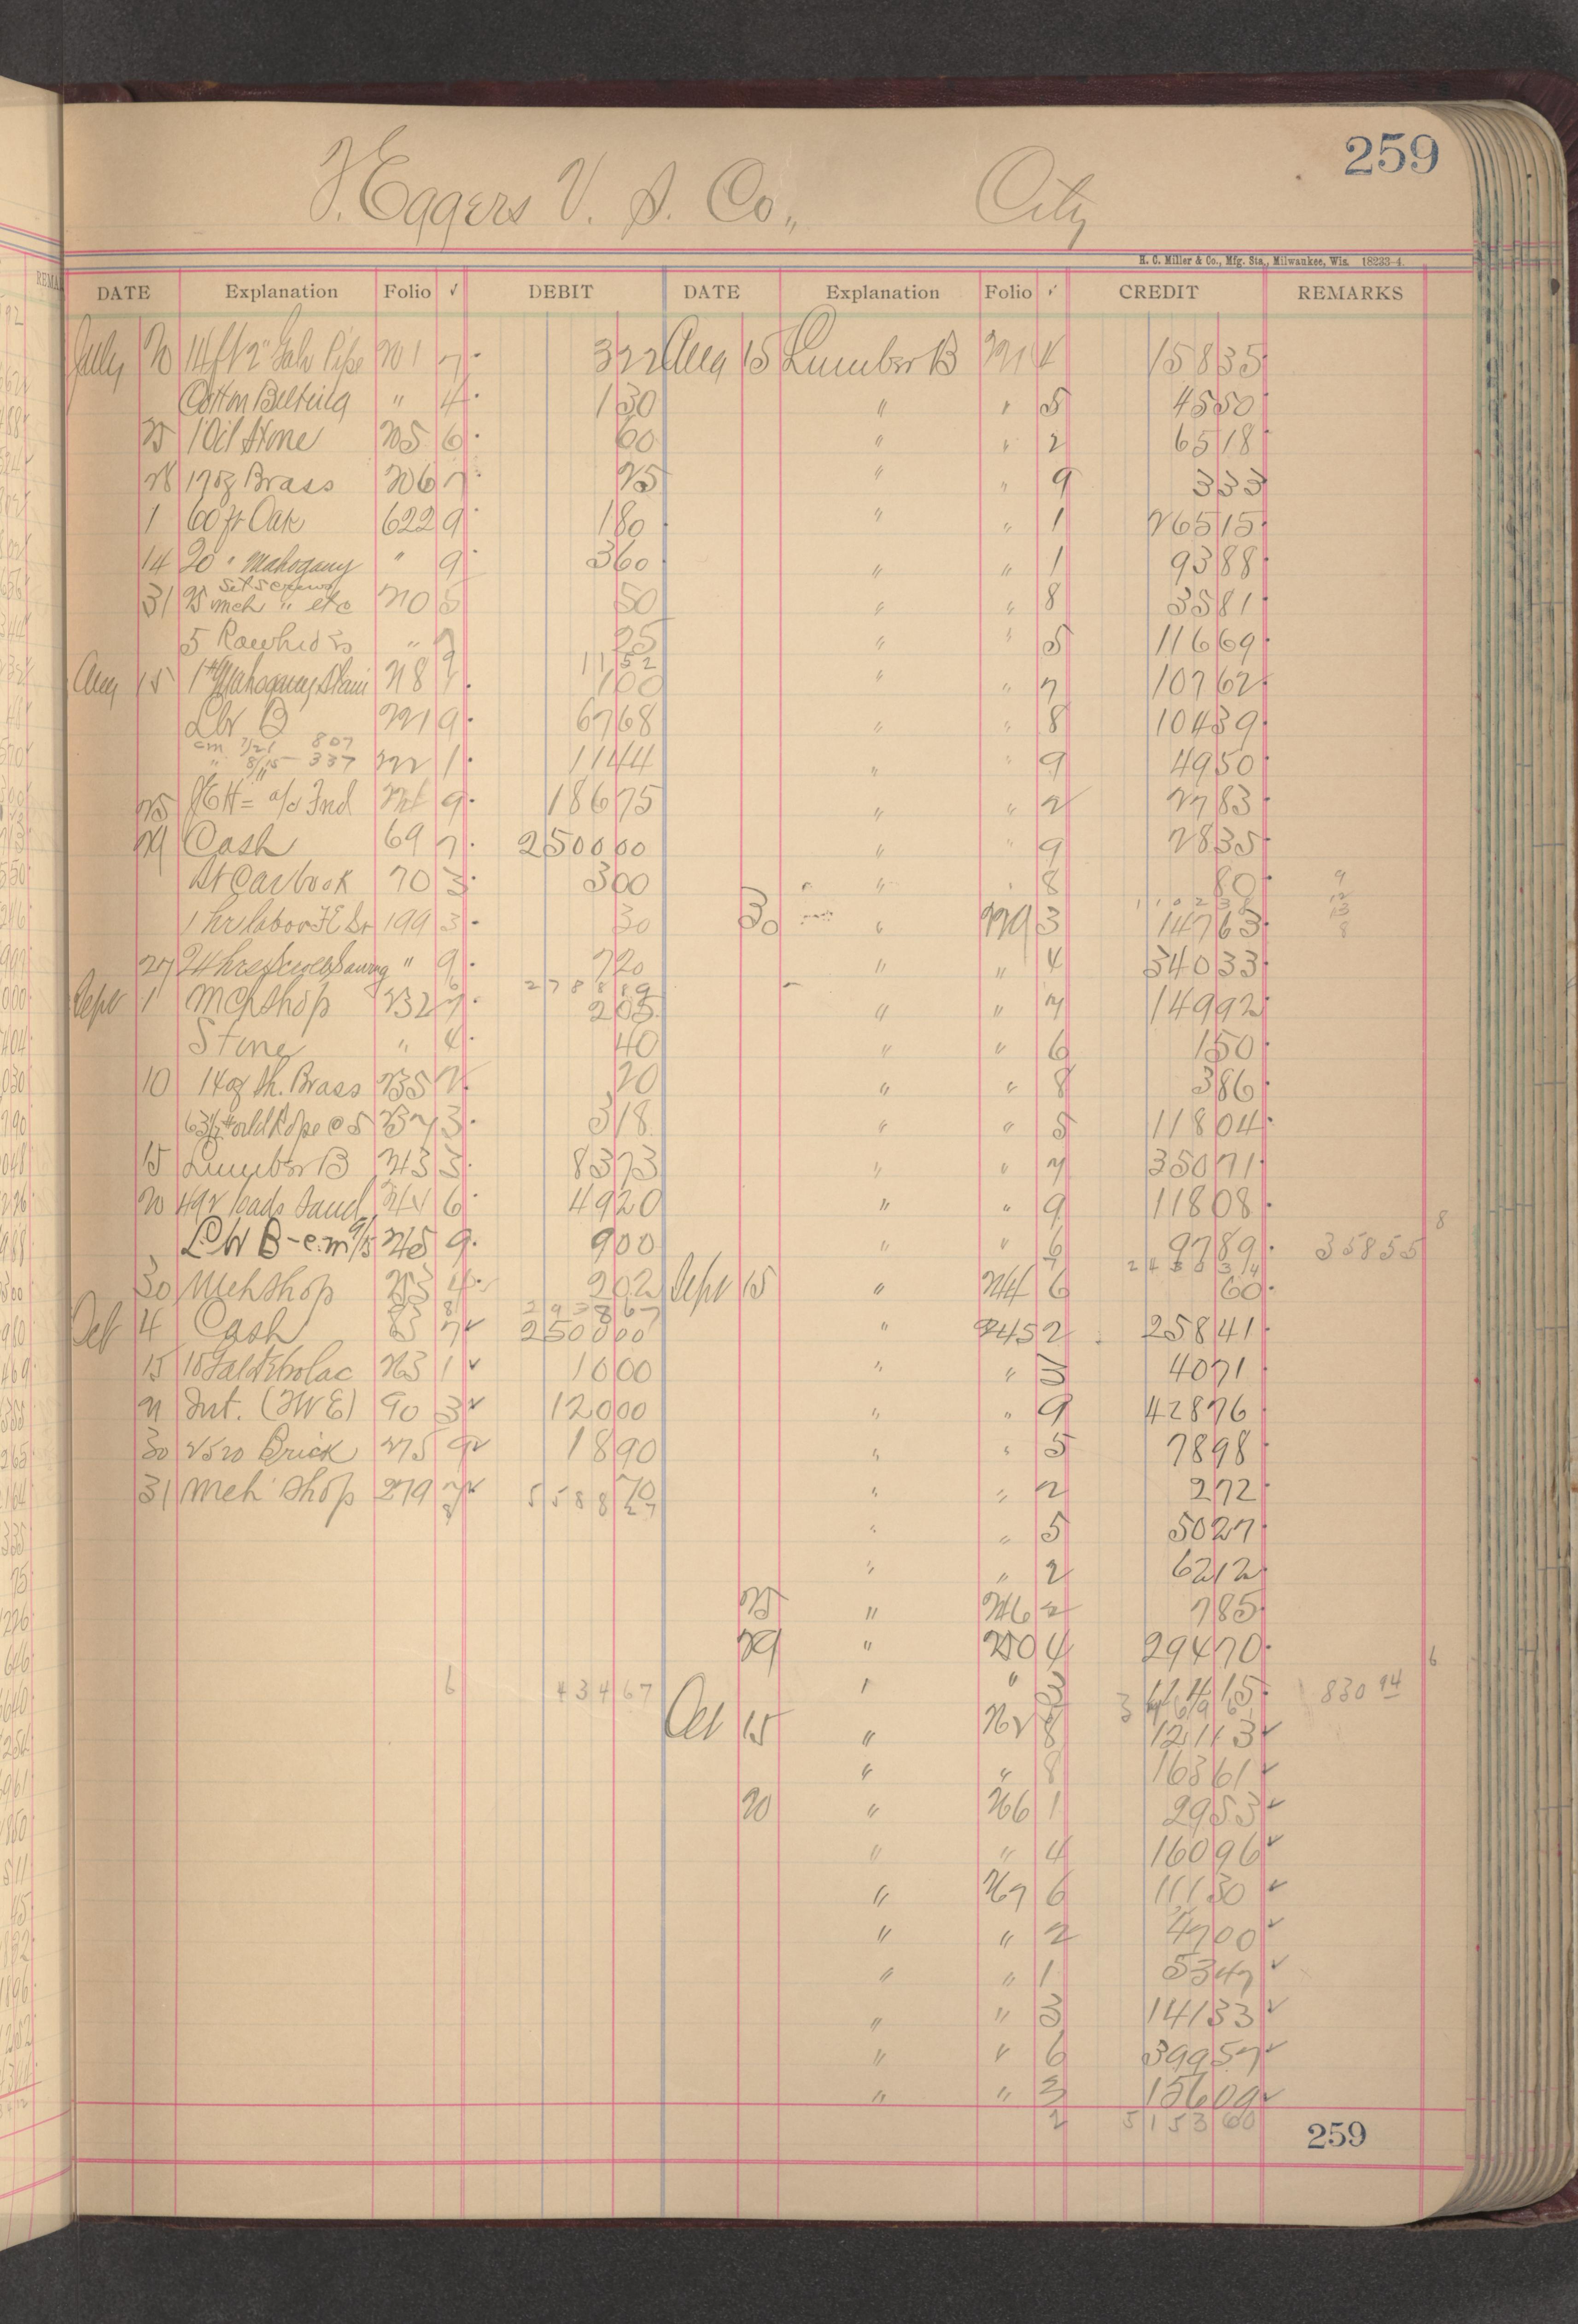 259
F. Eggers V. S. Co., City
H. C. Miller & Co., Mfg. Sta., Milwaukee, Wis. 18233-4.
DATE Explanation Folio √ DEBIT DATE Explanation Folio √ CREDIT REMARKS
July 20 14 ft 2" Galv Pipe 201 7 3 22 Aug 15 Lumber B 221 4 158 35
Cotton Belting " 4 1 30 " " 5 45 50
25 1 Oil Stone 205 6 60 " " 2 65 18
28 1 Brass 206 7 25 " " 9 3 33
1 60 ft Oak 622 9 1 80 " " 1 265 15
14 20 " Mahogany " 9 3 60 " " 1 93 88
Set Screws
31 25 mch " etc 210 5 50 " " 8 35 81
5 Rawhides " 9 25 " " 5 116 69
11 52
Aug 15 1# Mahogany Stain 218 1 00 " " 7 107 62
Lbr B 221 9 67 68 " " 8 104 39
cm 7/21 807
" 8/15 337 222 1 11 44 " " 9 49 50
25 a/c Ind 9 186 75 " " 2 27 83
29 Cash 69 7 2500 00 " " 9 28 35
St Car book 70 3 3 00 " " 8 80
1 hr labor 199 3 30 30 " 229 3 147 63
27 24 hrs " 9 7 20 " " 4 340 33
2788 89
Sept 1 Mch Shop 232 7 2 03 " " 7 149 92
Stone " 4 40 " " 6 1 50
10 14 oz Sh. Brass 235 2 20 " " 8 3 86
63½# old Rope @ 5 237 3 3 18 " " 5 118 04
15 Lumber B 243 3 83 73 " " 7 350 71
20 492 loads Sand 244 6 49 20 " " 9 118 08
Lbr B - c.m 9/15 245 9 9 00 " " 6 97 89 358 55 8
30 Mch Shop 253 4 2 02 Sept 15 " 244 6 60
2938 67
Oct 4 Cash 83 7 2500 00 " 245 2 258 41
15 10 Gal Sholac 263 1 10 00 " " 3 40 71
21 Int. (FWE) 90 3 120 00 " " 9 428 76
30 2520 Brick 275 9 18 90 " " 5 78 98
31 Mch Shop 279 7 70 " " 2 2 72
5588 27
" " 5 50 27
" " 2 62 12
25 " 246 2 7 85
29 " 250 4 294 70
6 434 67 " " 3 830 94 6
Oct 15 " 262 8 121 43
" " 8 163 61
20 " 266 1 29 53
" " 4 160 96
" 267 6 111 30
" " 2 47 00
" " 1 53 47
" " 3 141 33
" " 6 399 57
" " 3 156 09
2 5153 60
259